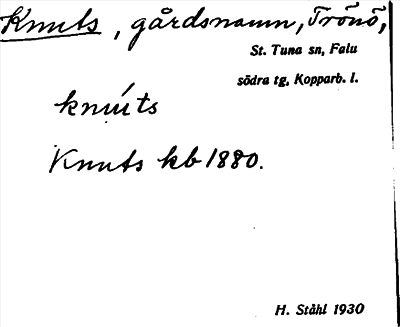 Knuts, gårdsnamn, Trönö,
St. Tuna sn, Falu
södra tg, Kopparb. l.
knúts
Knuts kb 1880.
H. Ståhl 1930